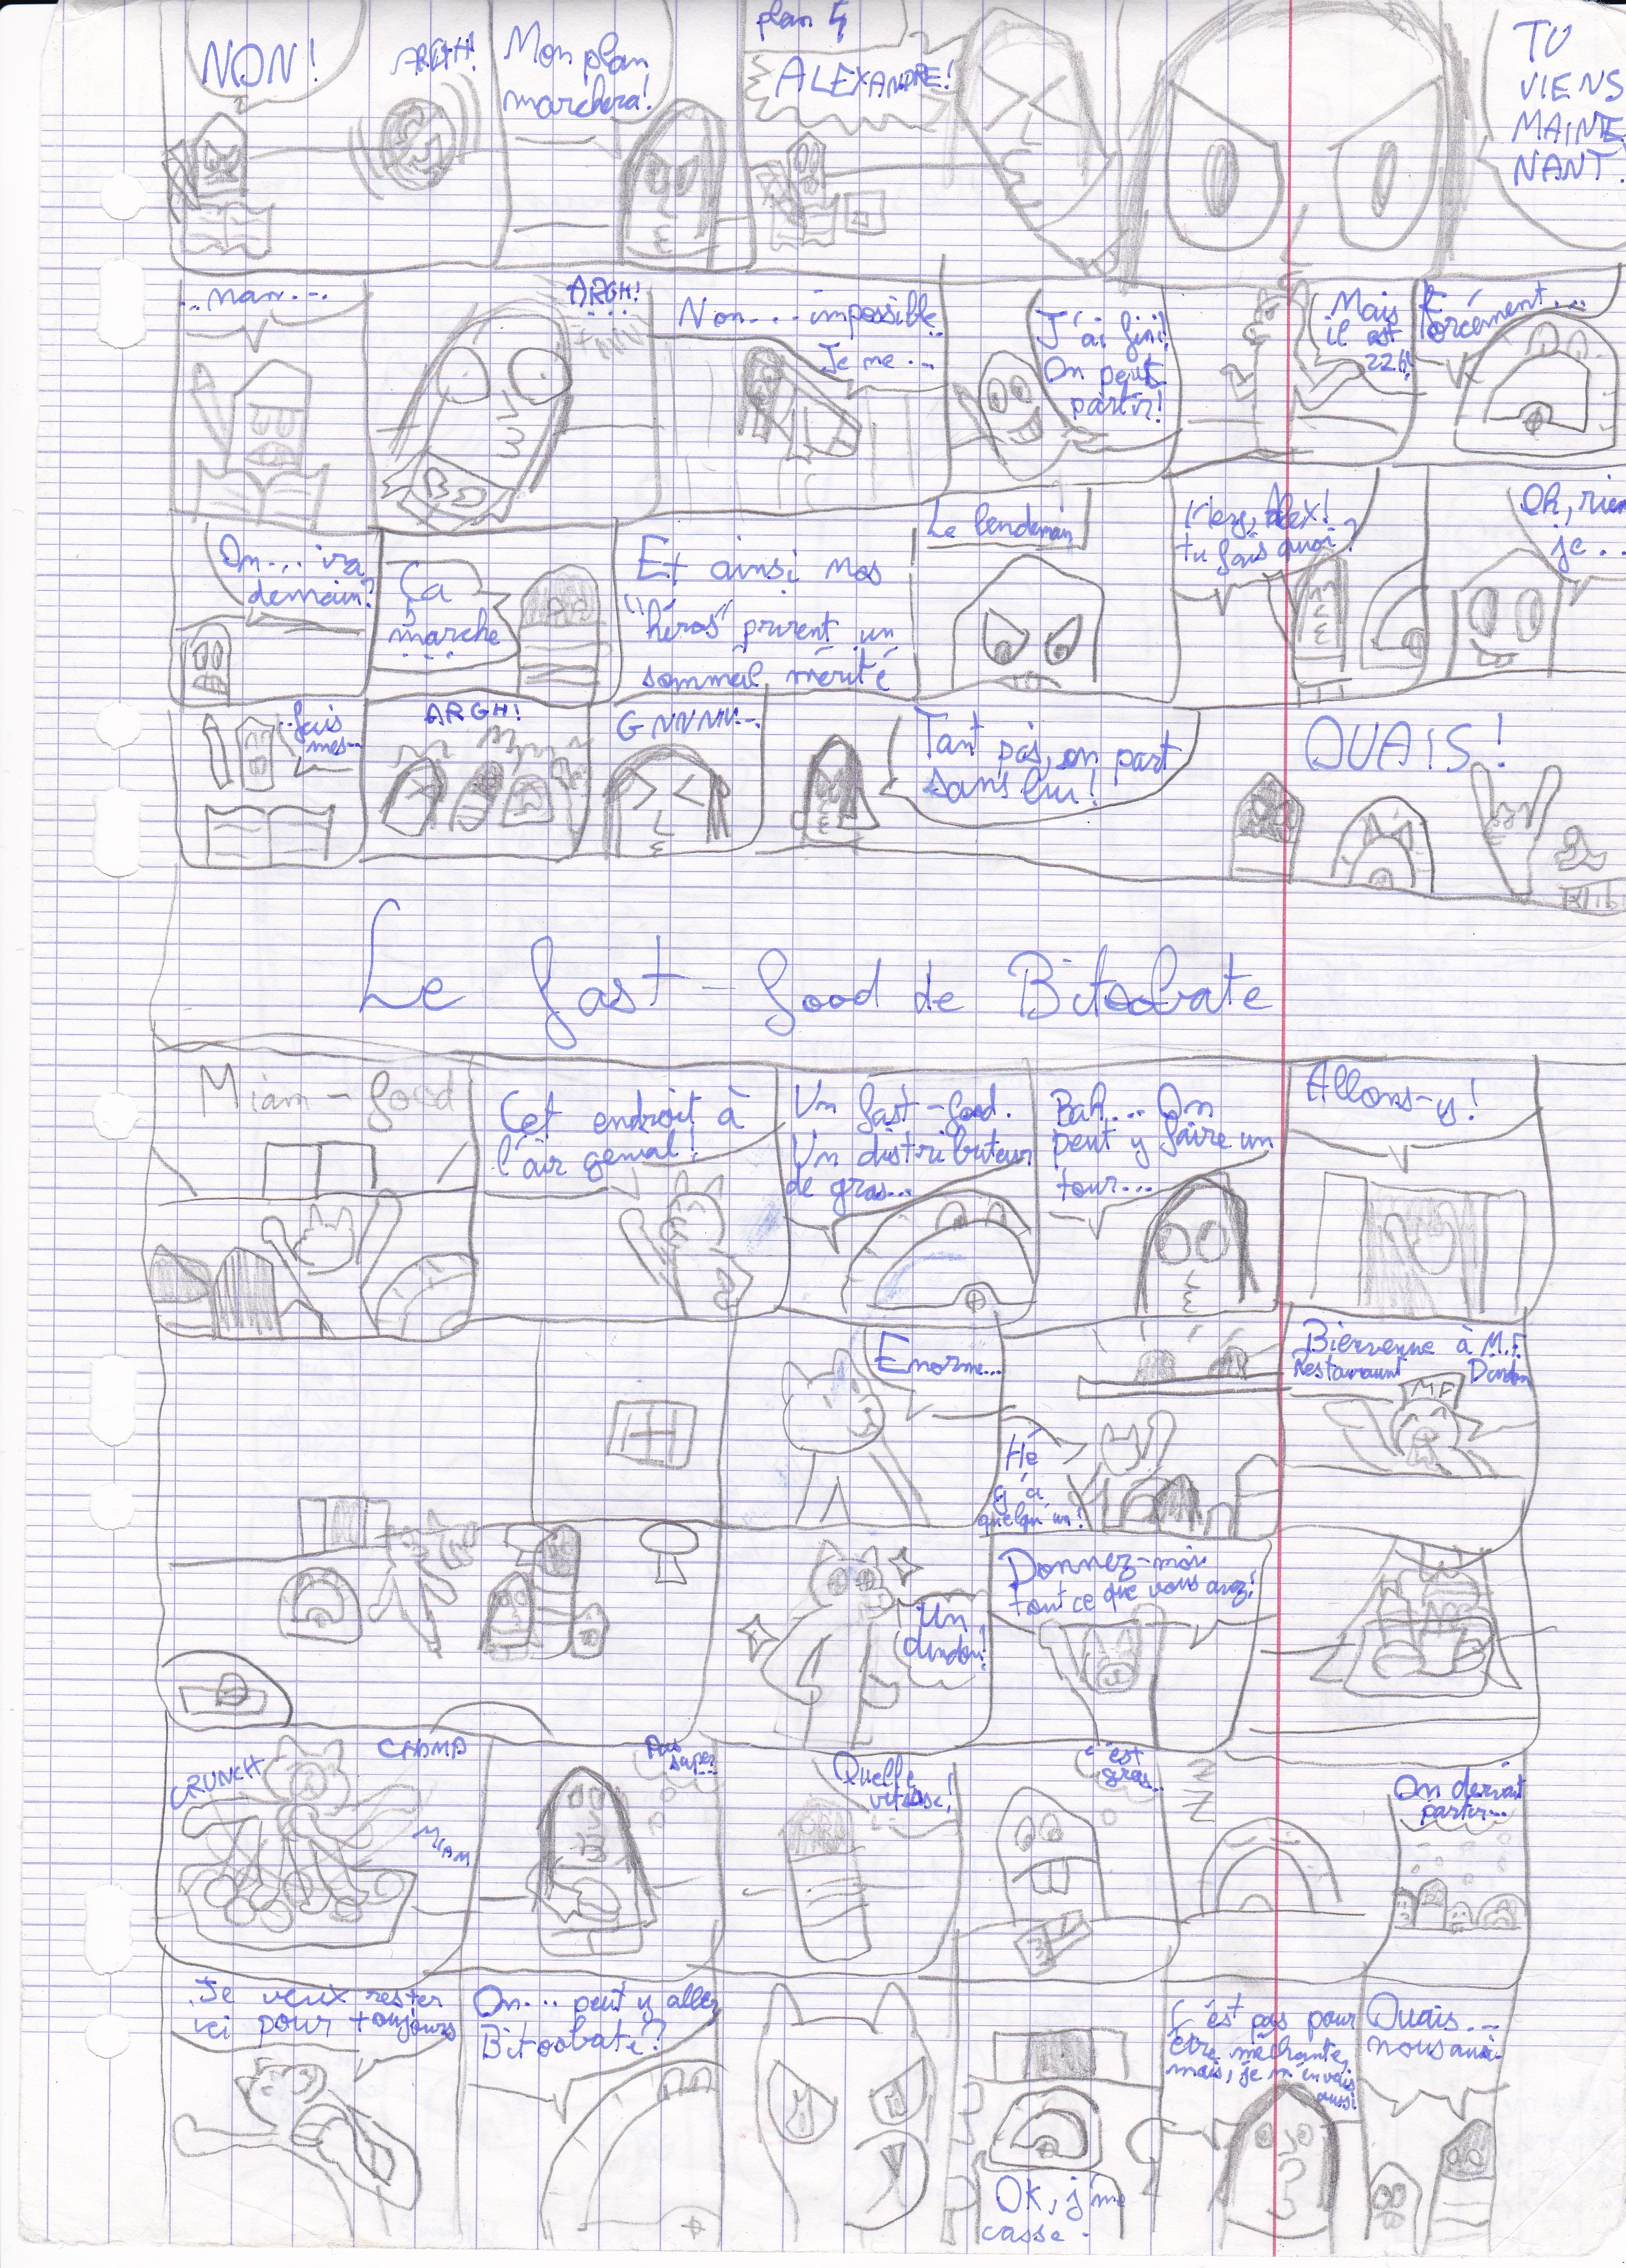 NON!
ARGH!
Mon plan
marchera!
plan 4
ALEXANDRE!
TU
VIENS
MAINTE
NANT.
...nan...
ARGH!
Non... impossible
Je me...
J'ai fini!
On peut
partir!
Mais
il est
22h!
Forcément...
On... ira
demain?
Ça
marche
...
Et ainsi nos
"héros" prirent un
sommeil mérité
Le lendemain
Alex!
tu fais quoi?
Oh, rien
je...
...fais
mes...
ARGH!
GNNNN...
Tant pis, on part
sans lui!
OUAIS!
Le fast-food de Bitoobate
Miam-food
Cet endroit à
l'air genial!
Un fast-food.
Un distributeur
de gras...
Bah... On
peut y faire un
tour...
Allons-y!
Enorme...
Hé
y'a
quelqu'un!
Bienvenue à M.F.
Restaurant Dindon
MF
Un
dindon!
Donnez-moi
tout ce que vous avez!
CRUNCH
CHOMP
MIAM
Pas
super...
Quelle
vitesse!
C'est
gras...
Z
Z
Z
On devrait
partir...
Je veux rester
ici pour toujours
On... peut y aller
Bitoobate?
Ok, j'me
casse.
C'est pas pour
être méchante,
mais, je m'en vais
aussi
Ouais...
nous aussi.